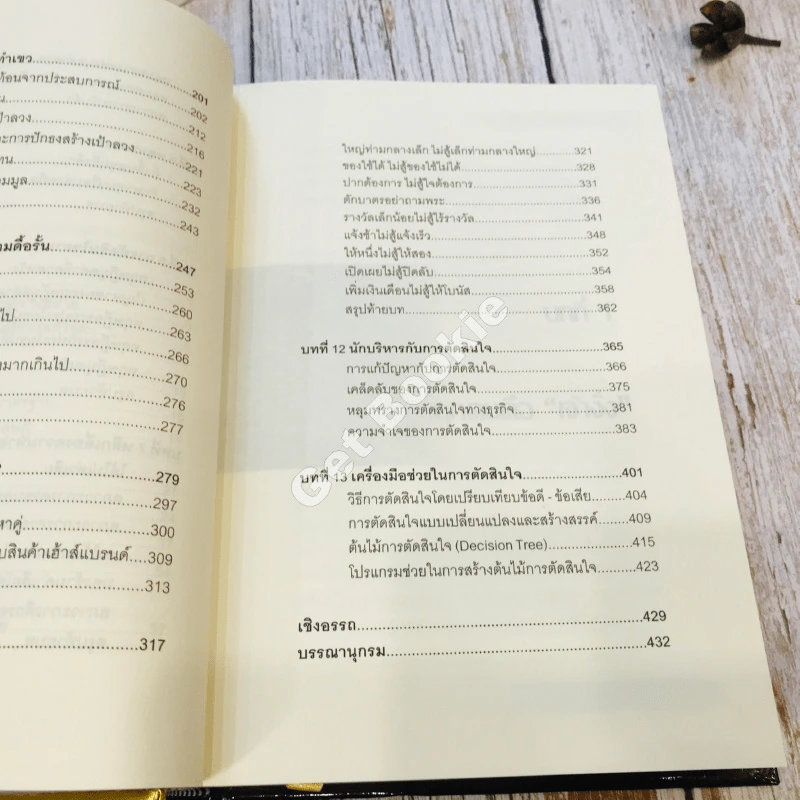 ทำเขว
ท้อนจากประสบการณ์ 201
น 202
ป้าลวง 212
ะการปักธงสร้างเป้าลวง 216
ทน 221
มมูล 223
232
243
ามดื้อรั้น 247
253
260
ไป 263
266
งมากเกินไป 270
276
277
279
297
หาคู่ 300
บสินค้าเฮ้าส์แบรนด์ 309
313
317
ใหญ่ท่ามกลางเล็ก ไม่สู้เล็กท่ามกลางใหญ่ 321
ของใช้ได้ ไม่สู้ของใช้ไม่ได้ 328
ปากต้องการ ไม่สู้ใจต้องการ 331
ตักบาตรอย่าถามพระ 336
รางวัลเล็กน้อยไม่สู้ไร้รางวัล 341
แจ้งช้าไม่สู้แจ้งเร็ว 348
ให้หนึ่งไม่สู้ให้สอง 352
เปิดเผยไม่สู้ปิดลับ 354
เพิ่มเงินเดือนไม่สู้ให้โบนัส 358
สรุปท้ายบท 362
บทที่ 12 นักบริหารกับการตัดสินใจ 365
การแก้ปัญหากับการตัดสินใจ 366
เคล็ดลับของการตัดสินใจ 375
หลุมพรางการตัดสินใจทางธุรกิจ 381
ความจำเจของการตัดสินใจ 383
บทที่ 13 เครื่องมือช่วยในการตัดสินใจ 401
วิธีการตัดสินใจโดยเปรียบเทียบข้อดี - ข้อเสีย 404
การตัดสินใจแบบเปลี่ยนแปลงและสร้างสรรค์ 409
ต้นไม้การตัดสินใจ (Decision Tree) 415
โปรแกรมช่วยในการสร้างต้นไม้การตัดสินใจ 423
เชิงอรรถ 429
บรรณานุกรม 432
Get Bookie